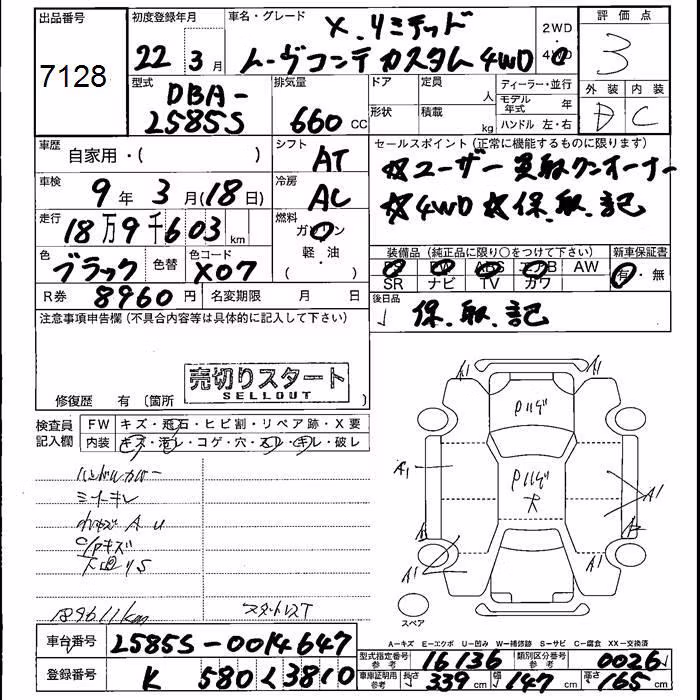 出品番号
7128
初度登録年月
22 年 3 月
車名・グレード
X.リミテッド
ムーヴコンテ カスタム 4WD
2WD
・
4WD
評価点
3
外装 内装
D C
型式
DBA-
L585S
排気量
660 CC
ドア
形状
定員
人
積載
kg
ディーラー・並行
モデル年式 年
ハンドル 左・右
車歴
自家用・( )
シフト
AT
セールスポイント (正常に機能するものに限ります)
☆ユーザー買取ワンオーナー
☆4WD ☆保.取.記
車検
9 年 3 月 (18 日)
冷房
AC
走行
18万9千603 km
燃料
ガソリン
軽・油
・( )
色
ブラック
色替
色コード
X07
装備品 (純正品に限り○をつけて下さい)
PS PW ABS エアB AW
SR ナビ TV カワ
新車保証書
有・無
R券 8960 円
名変期限 月 日
後日品
保.取.記
注意事項申告欄 (不具合内容等は具体的に記入して下さい)
売切りスタート
SELLOUT
修復歴 有 〔箇所 〕
検査員記入欄
FW キズ・飛石・ヒビ割・リペア跡・X要
内装 キズ・汚レ・コゲ・穴・スレ・キレ・破レ
ハンドルカバー
A1 A1
Pハゲ
Pハゲ
A1
A1
A1 A1
スペア
189611km
A=キズ E=エクボ U=凹み W=補修跡 S=サビ C=腐食 XX=交換済
車台番号 L585S-0014647
型式指定番号 参考 16136
類別区分番号 参考 0026
登録番号 K 580 く 3810
車庫証明用 参考 長さ 339 cm 幅 147 cm 高さ 165 cm